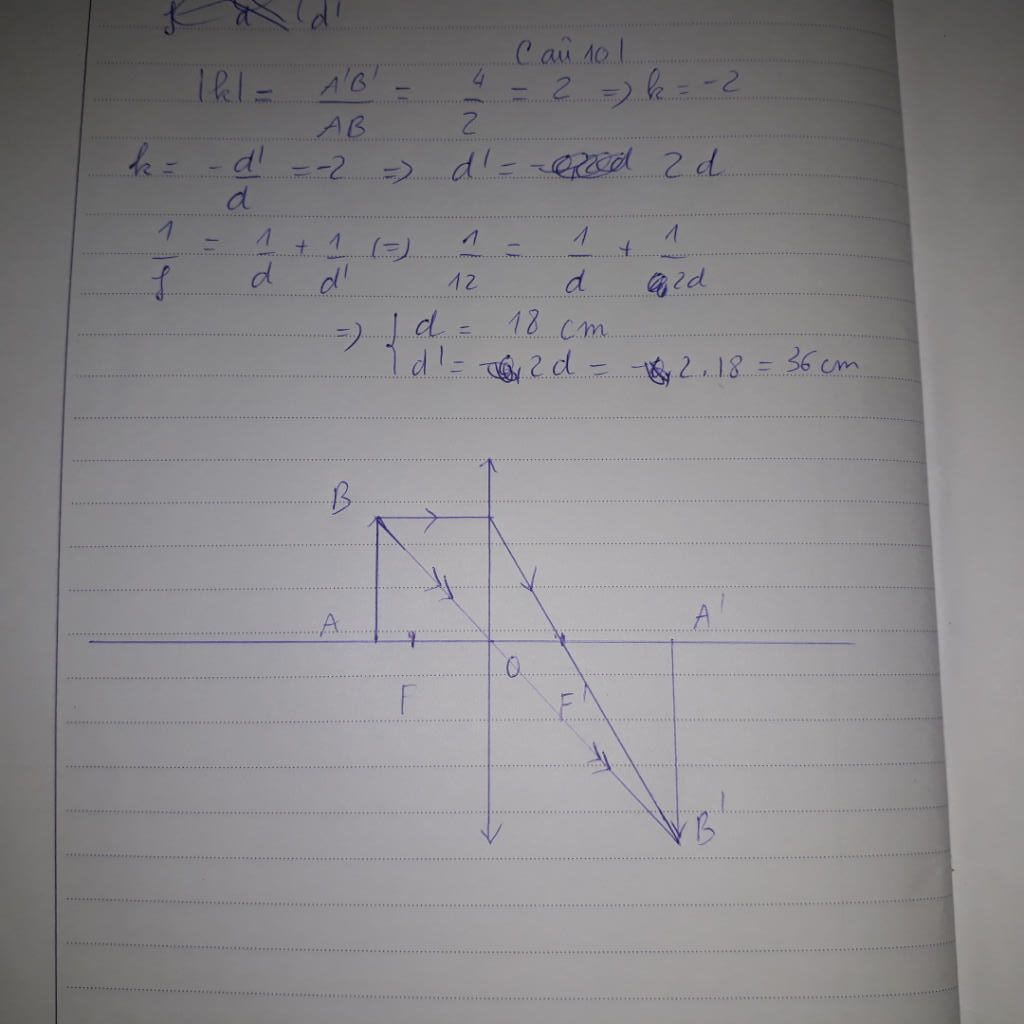 Câu 10
|k| = A'B'/AB = 4/2 = 2 => k = -2
k = -d'/d = -2 => d' = 2d
1/f = 1/d + 1/d' (=) 1/12 = 1/d + 1/2d
=> { d = 18 cm
d' = 2d = 2.18 = 36cm
B
A A'
O
F F'
B'